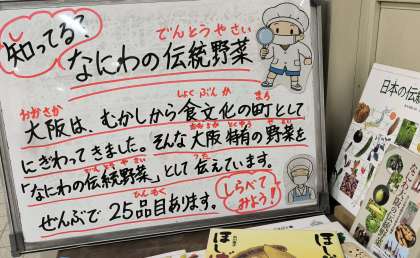 知ってる？
でんとうやさい
なにわの伝統野菜
おおさか しょくぶんか まち
大阪は、むかしから食文化の町として
にぎわってきました。そんな大阪特有の野菜を
「なにわの伝統野菜」として伝えています。
ひんもく
ぜんぶで25品目あります。
しらべて
みよう！
日本の伝
ほし